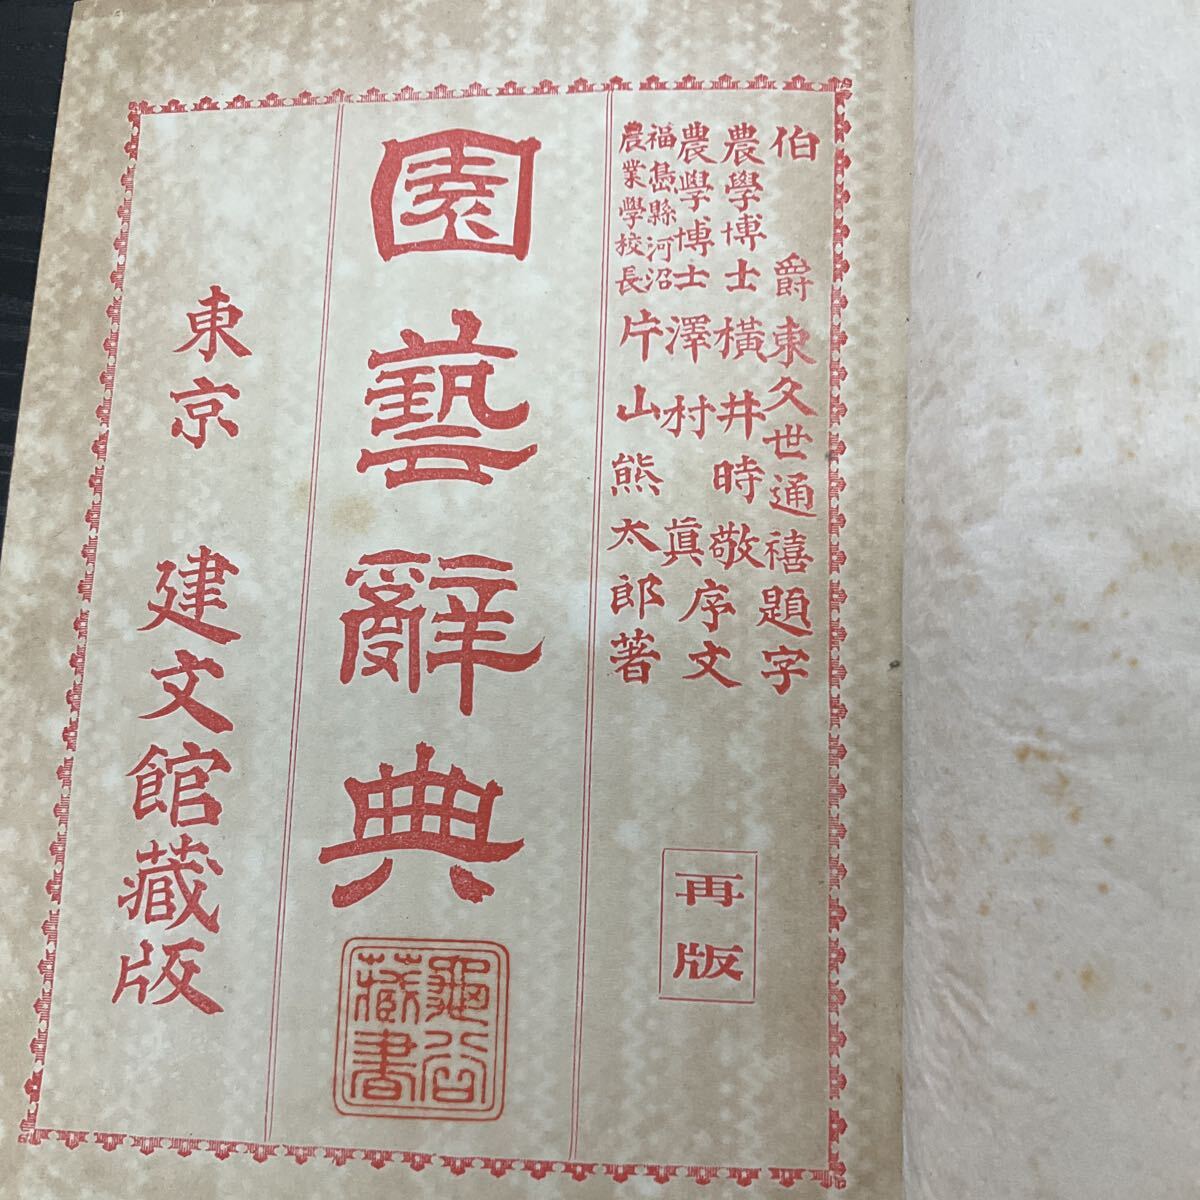 伯爵東久世通禧題字
農學博士橫井時敬序文
農學博士澤村眞
福島縣河沼
農業學校長
片山熊太郎著
再版
園藝辭典
東京 建文館藏版
藏書